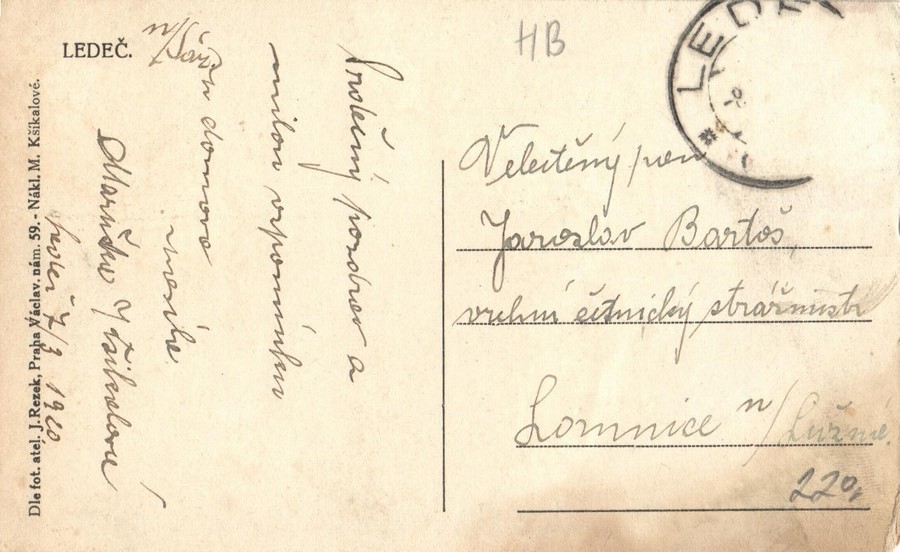 LEDEČ.
n/Sáz.
Srdečný pozdrav a
milou vzpomínku
z domova
Maruška
Ledeč 7/3 1920
Dle fot. atel. J. Rezek, Praha Václav. nám. 59. - Nákl. M. Kšikalové.
HB
LEDE
Velectěný pan
Jaroslav Bartoš,
vrchní četnický strážmistr
Lomnice n/Lužnē.
220,